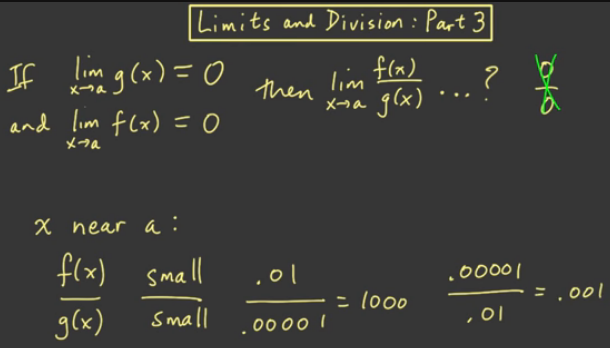 Limits and Division: Part 3
If lim x→a g(x) = 0 then lim x→a f(x)/g(x) ...? 0/0
and lim x→a f(x) = 0
x near a:
f(x)/g(x) small/small .01/.00001 = 1000 .00001/.01 = .001